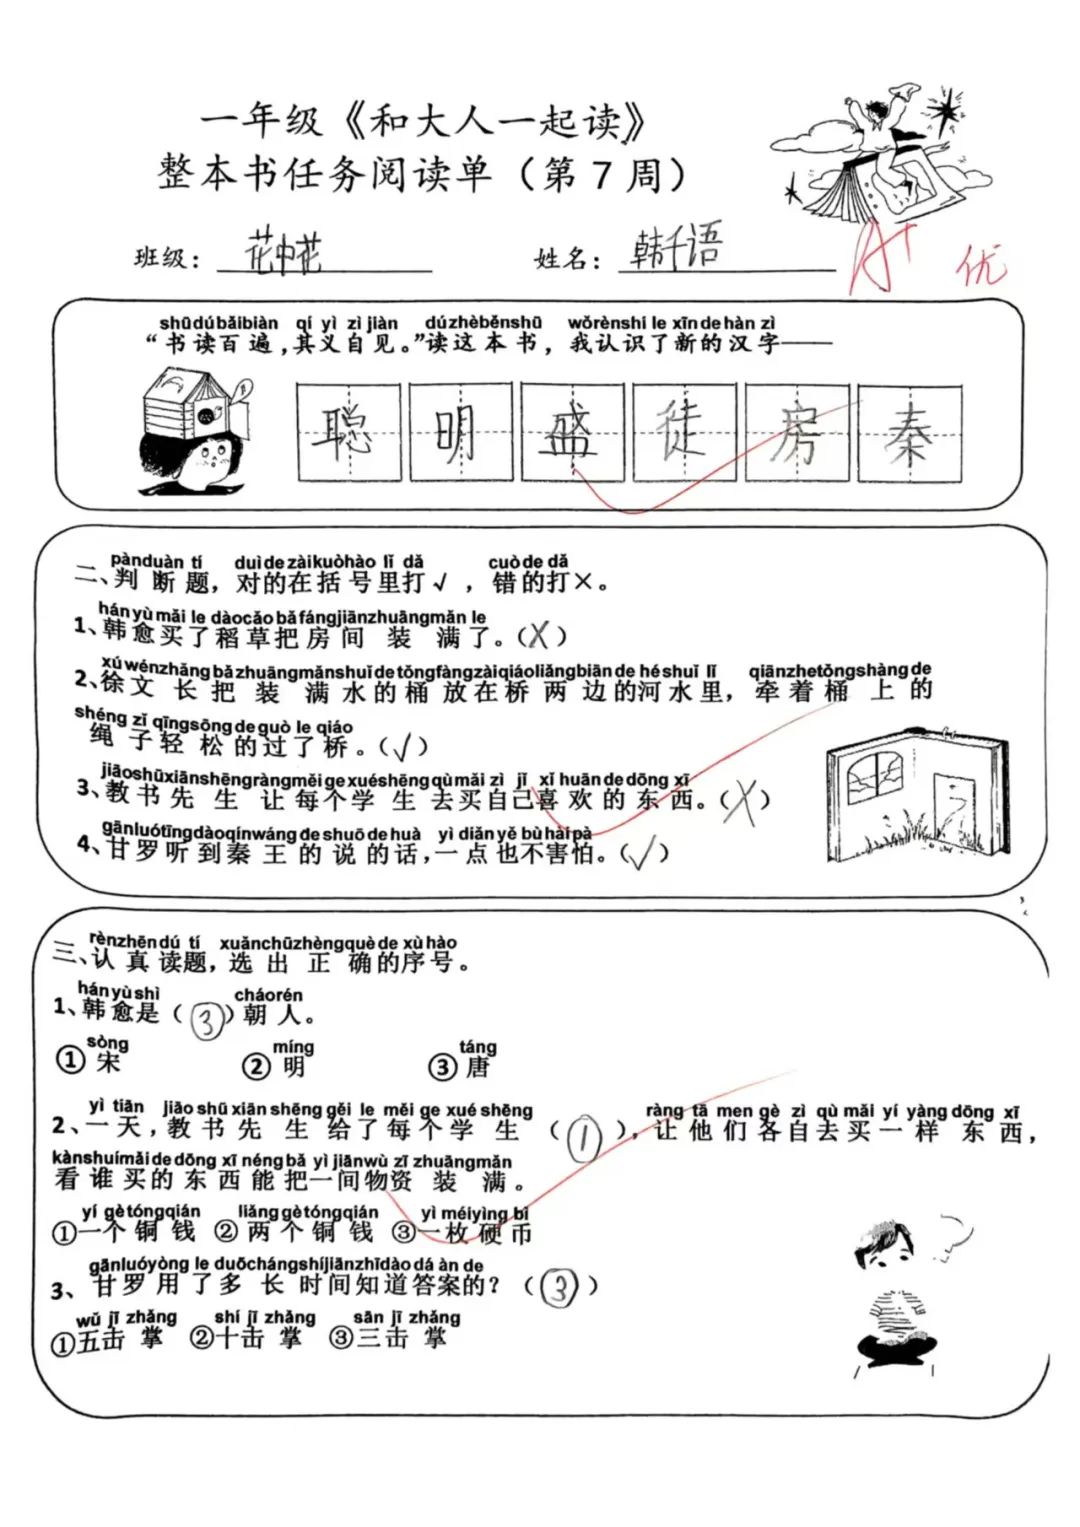 一年级《和大人一起读》
整本书任务阅读单（第7周）
班级：花中花 姓名：韩千语
A+ 优
shūdúbǎibiàn qí yì zì jiàn dúzhèběnshū wǒrènshi le xīndehàn zì
“书读百遍，其义自见。”读这本书，我认识了新的汉字——
聪 明 盛 徒 房 秦
pànduàn tí duìdezàikuòhào lǐ dǎ cuòde dǎ
二、判断题，对的在括号里打√，错的打×。
hányùmǎi le dàocǎobǎfángjiānzhuāngmǎn le
1、韩愈买了稻草把房间装满了。（X）
xúwénzhǎngbǎzhuāngmǎnshuǐdetǒngfàngzàiqiáoliǎngbiānde héshuǐ lǐ qiānzhetǒngshàngde
2、徐文长把装满水的桶放在桥两边的河水里，牵着桶上的
shéng zǐ qīngsōngdeguò le qiáo
绳子轻松的过了桥。（√）
jiāoshūxiānshēngràngměigexuéshēngqùmǎi zì jǐ xǐ huāndedōng xī
3、教书先生让每个学生去买自己喜欢的东西。（X）
gānluótīngdàoqínwáng de shuō de huà yì diǎnyě bù hàipà
4、甘罗听到秦王的说的话，一点也不害怕。（√）
rènzhēndú tí xuǎnchūzhèngquède xù hào
三、认真读题，选出正确的序号。
hányùshì cháorén
1、韩愈是（3）朝人。
sòng míng táng
①宋 ②明 ③唐
yì tiān jiāo shū xiān shēng gěi le měi ge xué shēng ràng tā men gè zì qù mǎi yí yàng dōng xī
2、一天，教书先生给了每个学生（1），让他们各自去买一样东西，
kànshuímǎidedōng xī néngbǎ yì jiānwù zī zhuāngmǎn
看谁买的东西能把一间物资装满。
yí gè tóngqián liǎnggètóngqián yì méiyìng bì
①一个铜钱 ②两个铜钱 ③一枚硬币
gānluóyòng le duōchángshíjiānzhīdào dá àn de
3、甘罗用了多长时间知道答案的？（3）
wǔ jī zhǎng shí jī zhǎng sān jī zhǎng
①五击掌 ②十击掌 ③三击掌